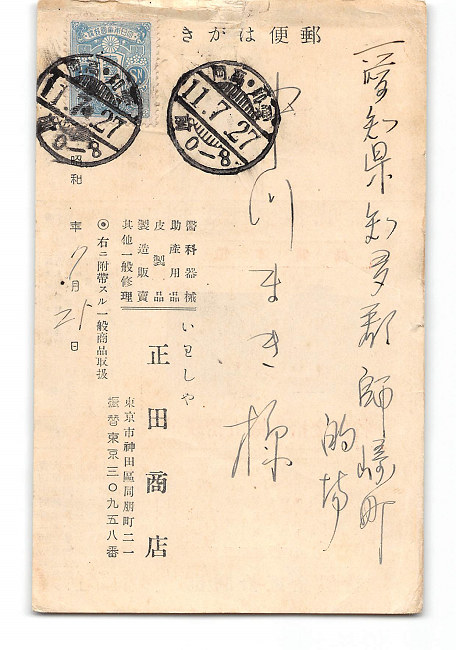 郵便はがき
愛知県知多郡師崎町
的場
中川まき様
11.7.27
0-8
11.7.27
0-8
昭和 年 7月 25日
醫科器械
助産用品
皮製品
製造販賣
其他一般修理
◎右ニ附帶スル一般商品取扱
いわしや
正田商店
東京市神田區同朋町二一
振替東京三〇九五八番